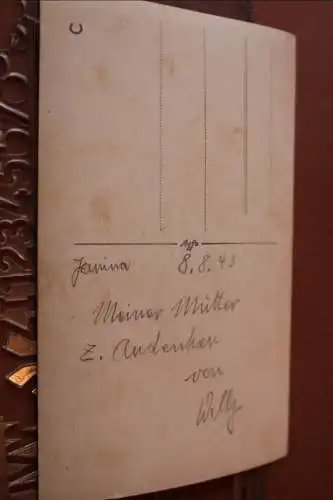 C
Agfa
Janina 8.8.43
Meiner Mutter
z. Andenken
von
Willy